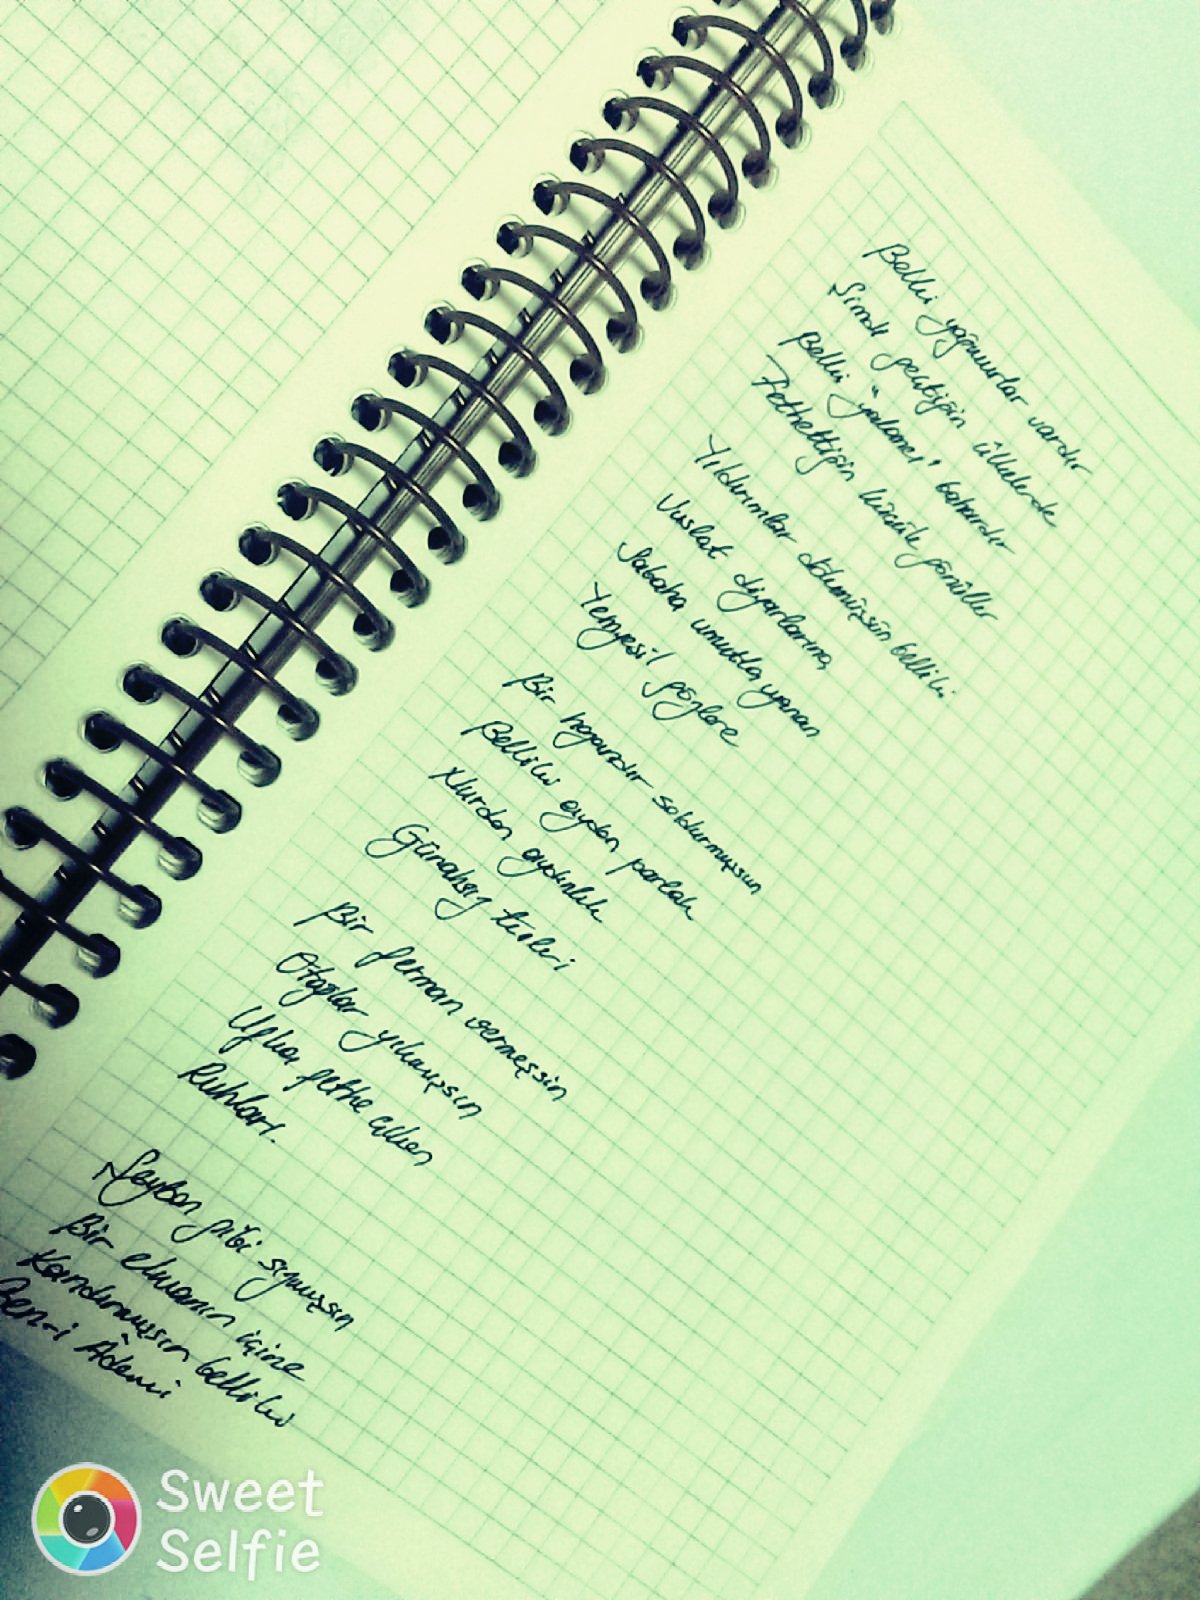 Belki yağmurlar vardır
Şimdi geçtiğin ülkelerde
Belki "yalancı" bahardır
Fethettiğin küçük gönüller
Yıldırımlar dökmüşsün belliki
Vuslat diyarlarına
Sabaha umutla uyanan
Yemyeşil gözlere
Bir hazandır soldurmuşsun
Belliki aydan parlak
Nurdan aydınlık
Günahsız tenleri
Bir ferman vermeşsin
Otağlar yıkmışsın
Ufka fethe çıkan
Ruhları.
Şeytan gibi sızmışsın
Bir elmanın içine
Kandırmışsın belliki
Ben-i Âdemi
Sweet
Selfie